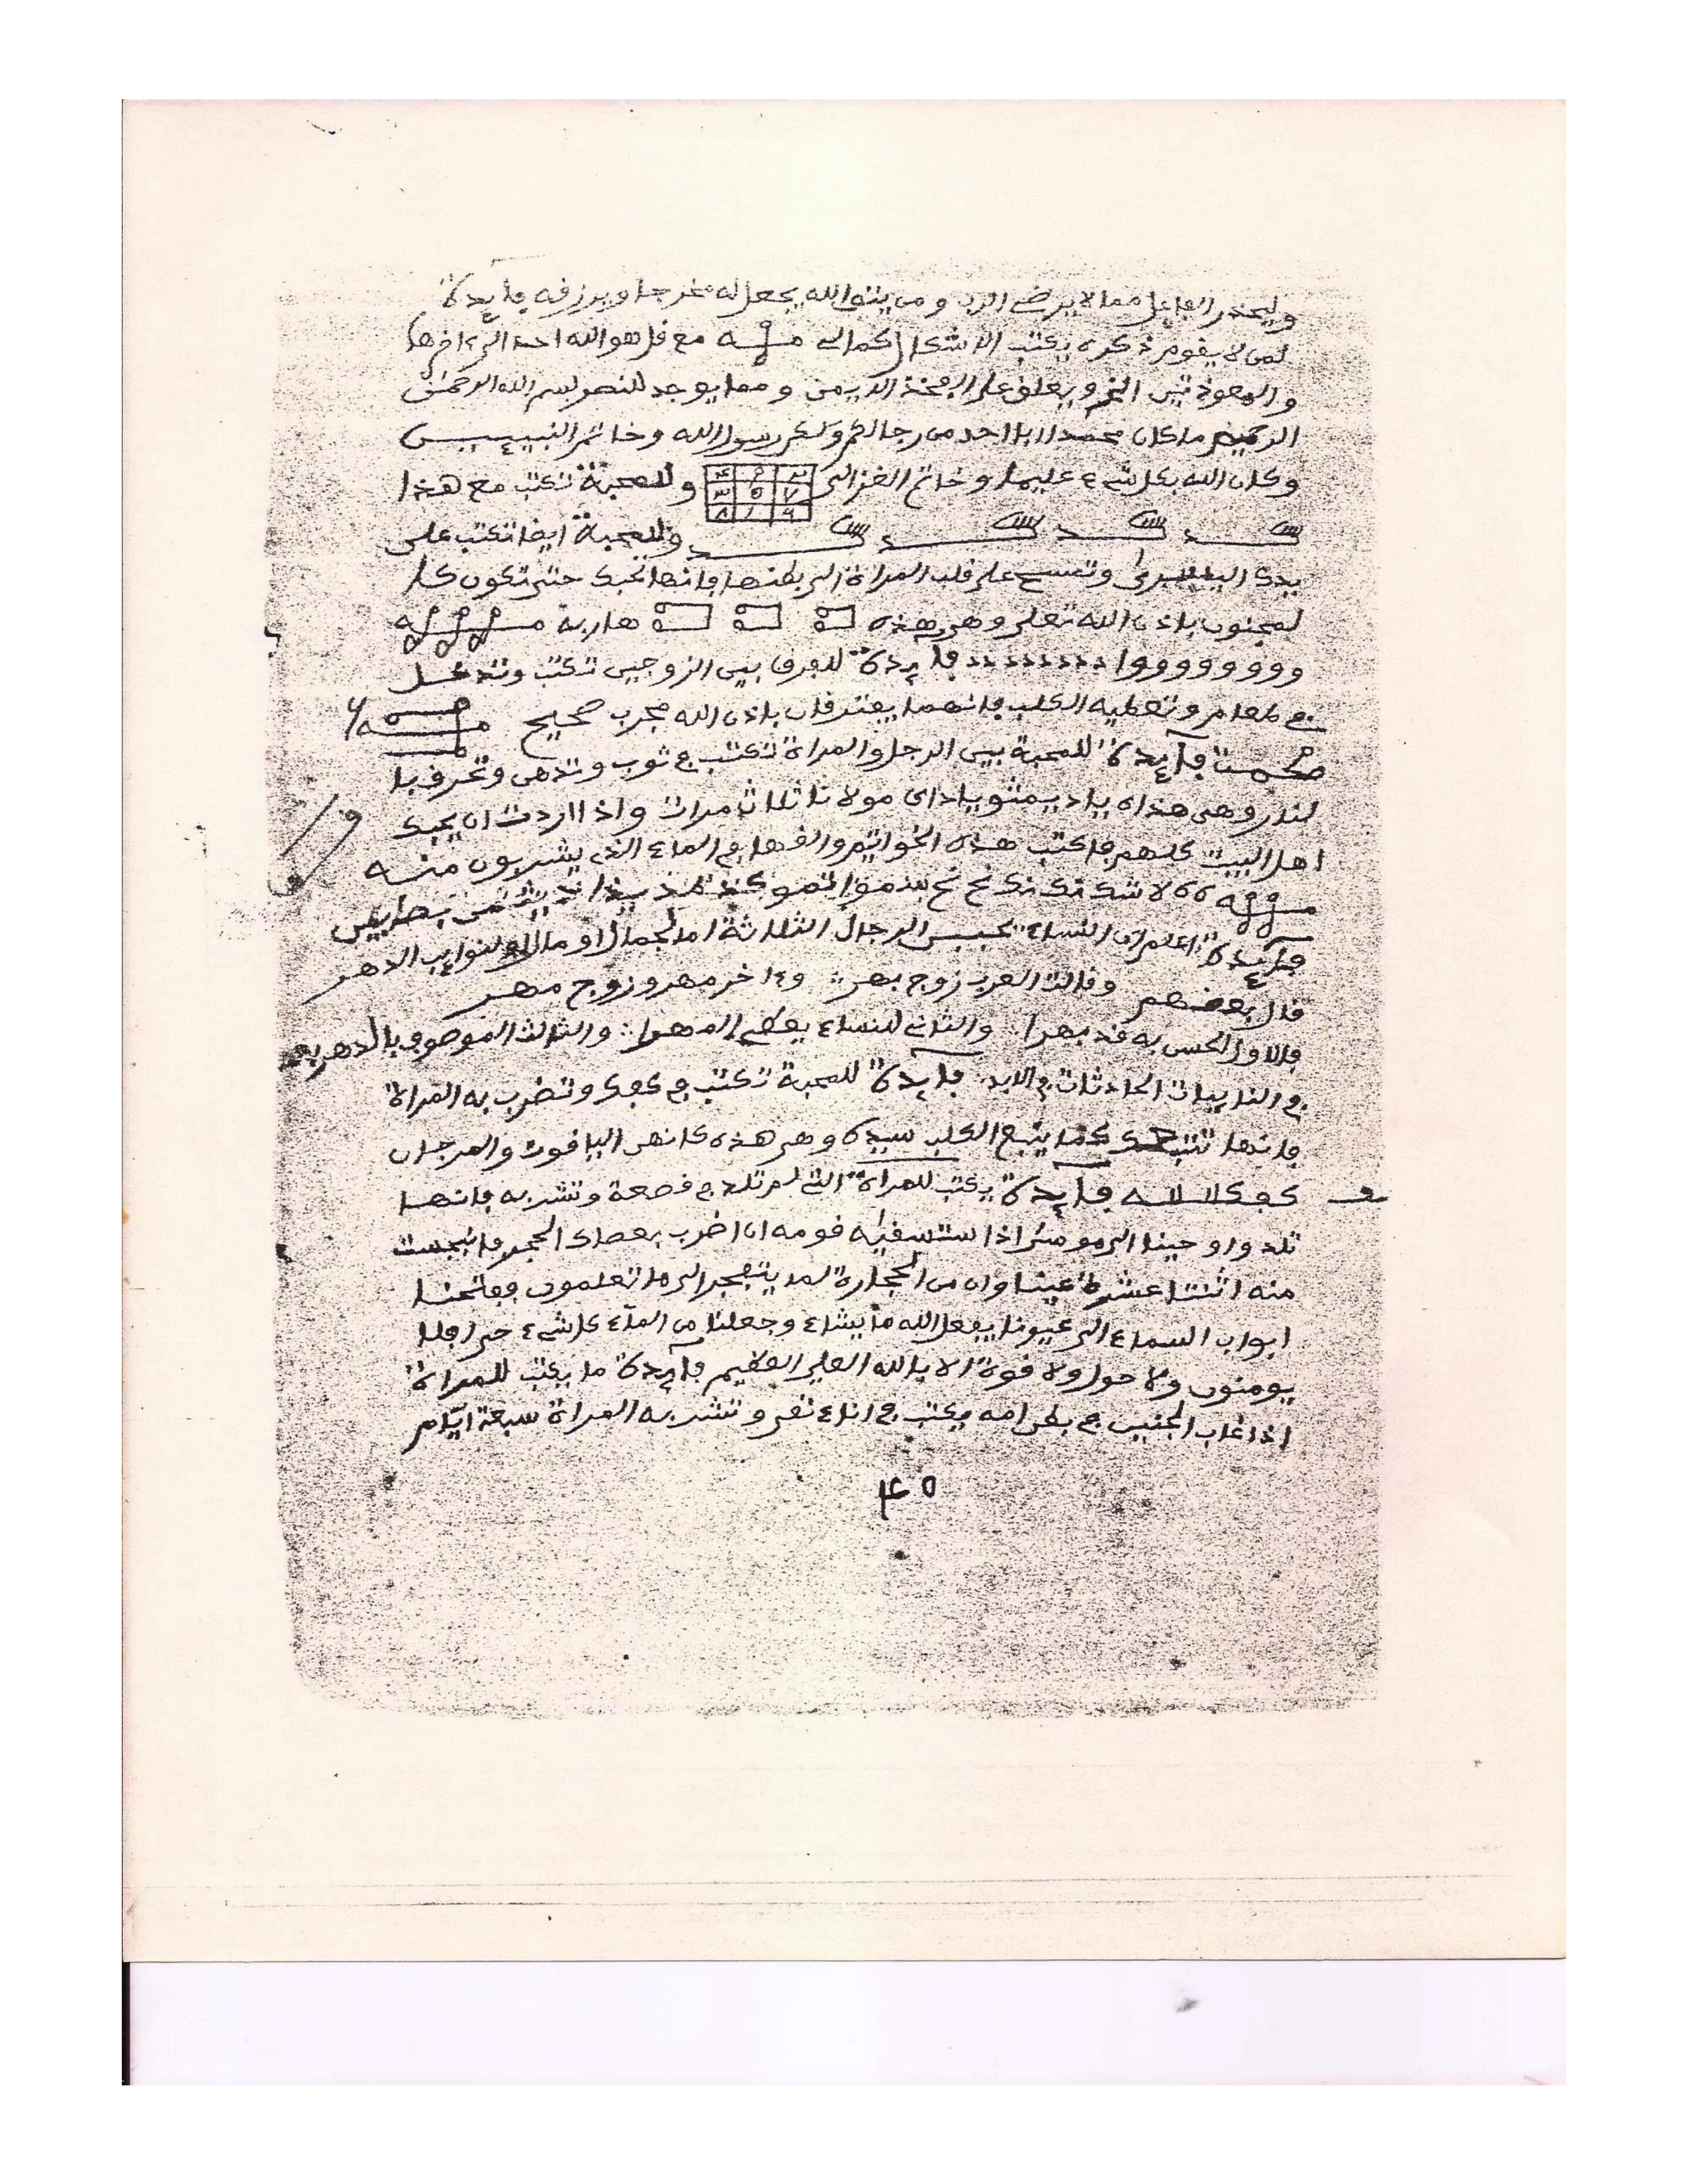 وليحذر الفاعل مما لا يرضي الرب ومن يتق الله يجعل له مخرجا ويرزقه فايدة
لمن لا يقوم ذكره يكتب الاشكال كمالى مع قل هو الله احد الى ءاخرها
والمعوذتين الخ ويعلق على الفخذ الايمن ومما يوجد للنصر بسم الله الرحمن
الرحيم ما كان محمد ابا احد من رجالكم ولكن رسول الله وخاتم النبيين
وكان الله بكل شيء عليما وخاتم الغزالي وللمحبة تكتب مع هذا
وللمحبة ايضا تكتب على
يدك اليسرى وتمسح على قلب المراة الى بطنها فانها تحبك حتى تكون كا
لمجنون باذن الله تعلى وهي هذه هاربة
وووووووووا فايدة للفرق بين الزوجين تكتب وتدخل
في طعام وتعطيه الكلب فانهما يفترقان باذن الله مجرب صحيح
فايدة للمحبة بين الرجل والمراة تكتب في ثوب وتدهن وتحرف با
لنار وهى هذه مولانا ثلاث مرات واذا اردت ان يحبك
اهل البيت كلهم فاكتب هذه الخواتم والقها في الماء الذي يشربون منه
فايدة اعلم ان النساء تحببن الرجال الثلاثة اما لجمال او مال او لنوايب الدهر
قال بعضهم وقالت العرب زوج بهر وءاخر مهر وزوج مهر
فالاول الحسن به قد بهرا والثاني للنساء يعطي المهرا والثالث الموصوف بالدهر يعد
في النايبات الحادثات في الابد فايدة للمحبة تكتب في كفك وتضرب به المراة
فانها تتبعك كما يتبع الكلب سيده وهي هذه كانهن الياقوت والمرجان
فايدة يكتب للمراة التي لم تلد في قصعة وتشربه فانها
تلد واوحينا الى موسى اذا ستسقيه قومه ان اضرب بعصاك الحجر فانبجست
منه اثنتا عشرة عينا وان من الحجارة لما يتفجر الى ما تعلمون ففتحنا
ابواب السماء الى عيونا يفعل الله ما يشاء وجعلنا من الماء كل شيء حي افلا
يومنون ولا حول ولا قوة الا بالله العلي العظيم فايدة ما يكتب للمراة
اذا غاب الجنين في بطن امه يكتب في اناء نقي وتشربه المراة سبعة ايام